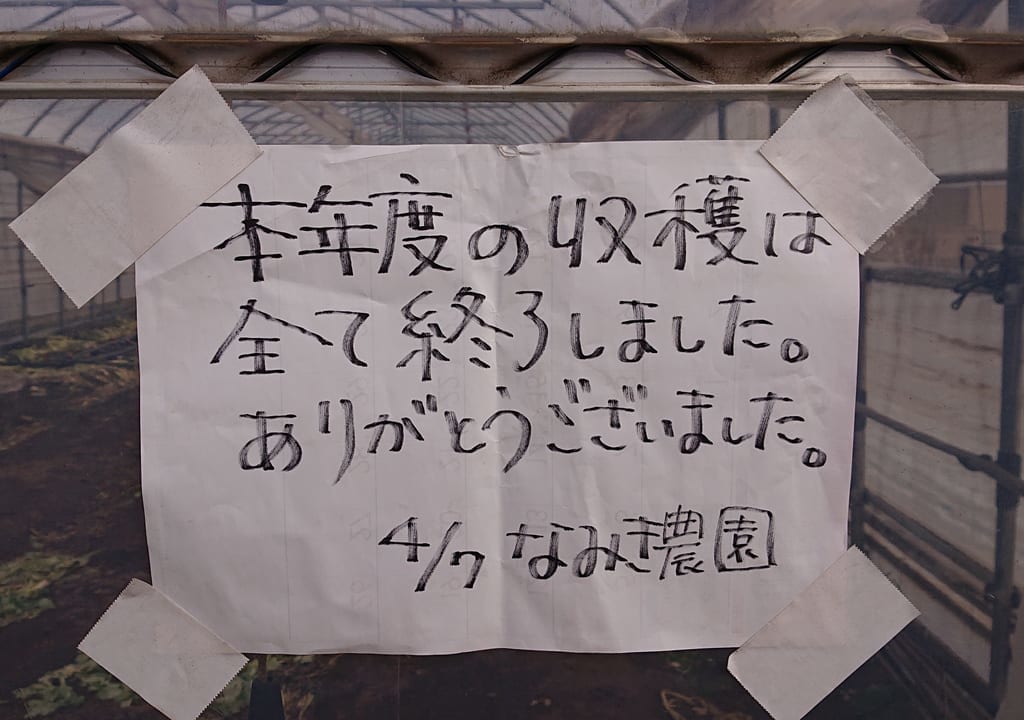 本年度の収穫は
全て終了しました。
ありがとうございました。
4/7 なみき農園